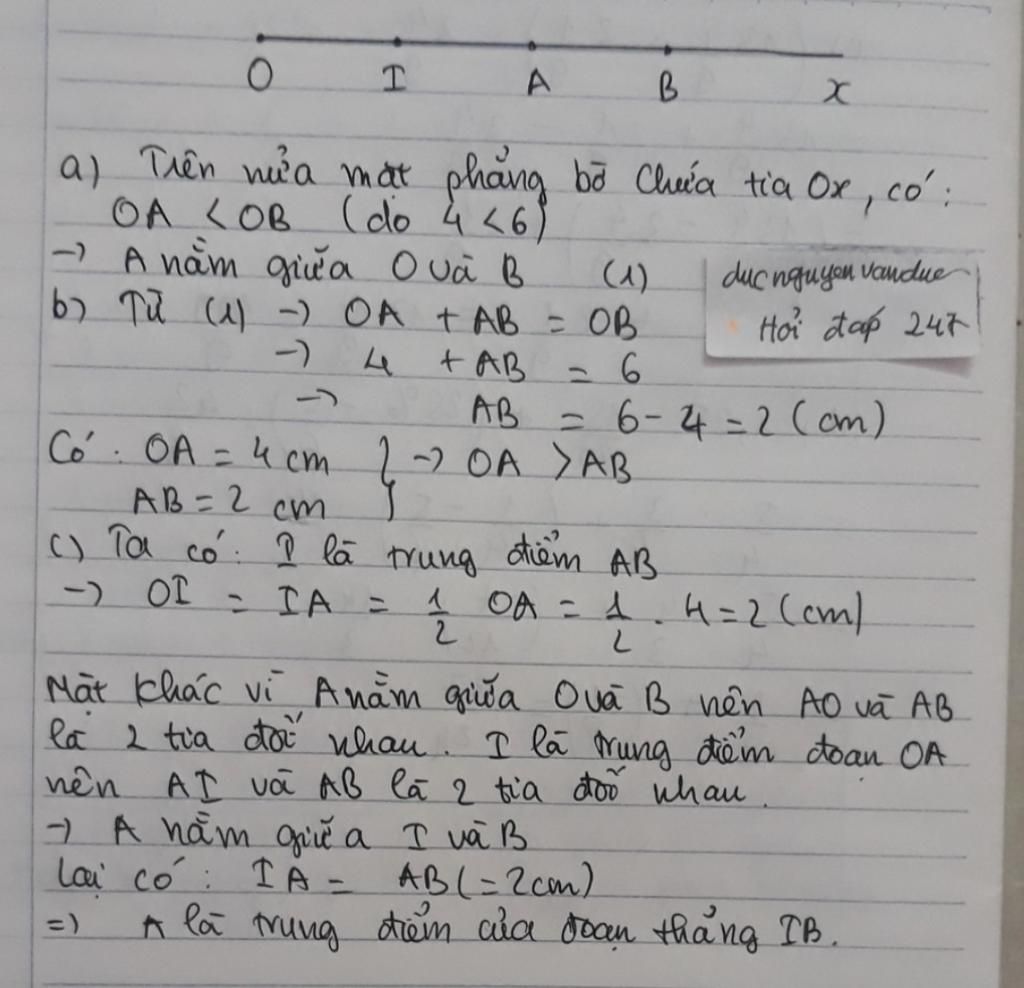 O I A B x
a) Trên nửa mặt phẳng bờ chứa tia Ox, có:
OA < OB (do 4 < 6)
→ A nằm giữa O và B (1)
ducnguyenvanduc
Hỏi đáp 247
b) Từ (1) → OA + AB = OB
→ 4 + AB = 6
→ AB = 6 - 4 = 2 (cm)
Có: OA = 4 cm } → OA > AB
AB = 2 cm
c) Ta có: I là trung điểm AB
→ OI = IA = 1/2 OA = 1/2 . 4 = 2 (cm)
Mặt khác vì A nằm giữa O và B nên AO và AB
là 2 tia đối nhau. I là trung điểm đoạn OA
nên AI và AB là 2 tia đối nhau.
→ A nằm giữa I và B
Lại có: IA = AB (= 2cm)
=> A là trung điểm của đoạn thẳng IB.